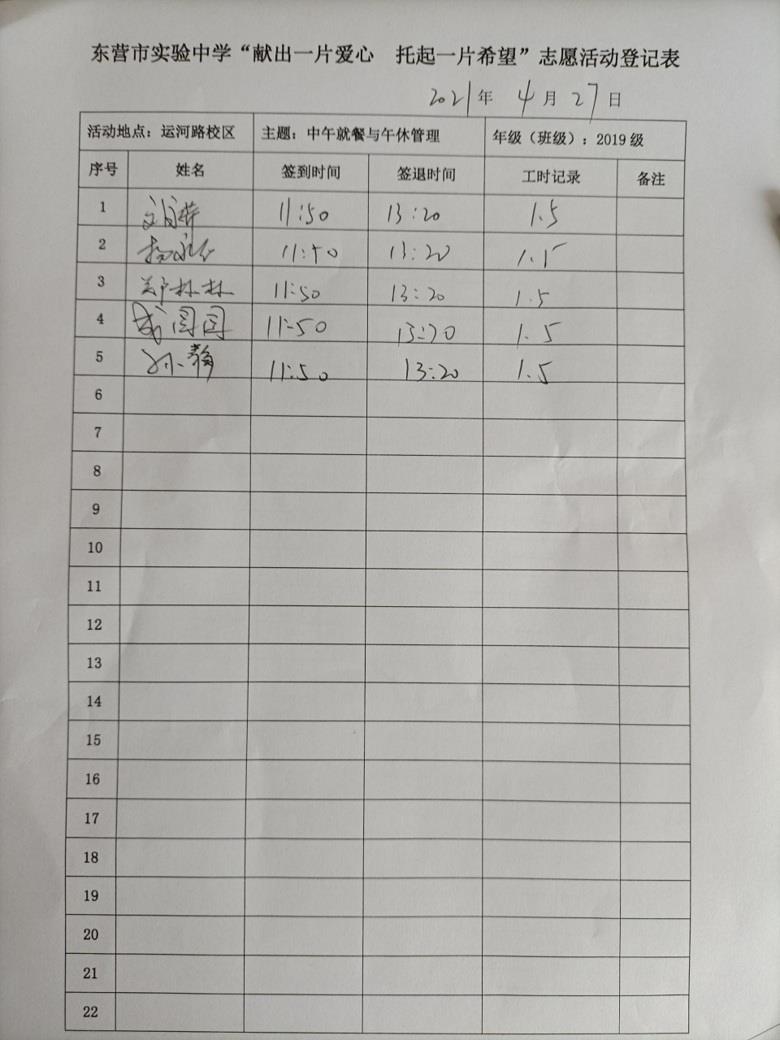 东营市实验中学“献出一片爱心 托起一片希望”志愿活动登记表
2021年 4月 27日
活动地点：运河路校区 主题：中午就餐与午休管理 年级（班级）：2019级
序号 姓名 签到时间 签退时间 工时记录 备注
1 11:50 13:20 1.5
2 11:50 13:20 1.5
3 郑林林 11:50 13:20 1.5
4 11:50 13:20 1.5
5 孙静 11:50 13:20 1.5
6
7
8
9
10
11
12
13
14
15
16
17
18
19
20
21
22